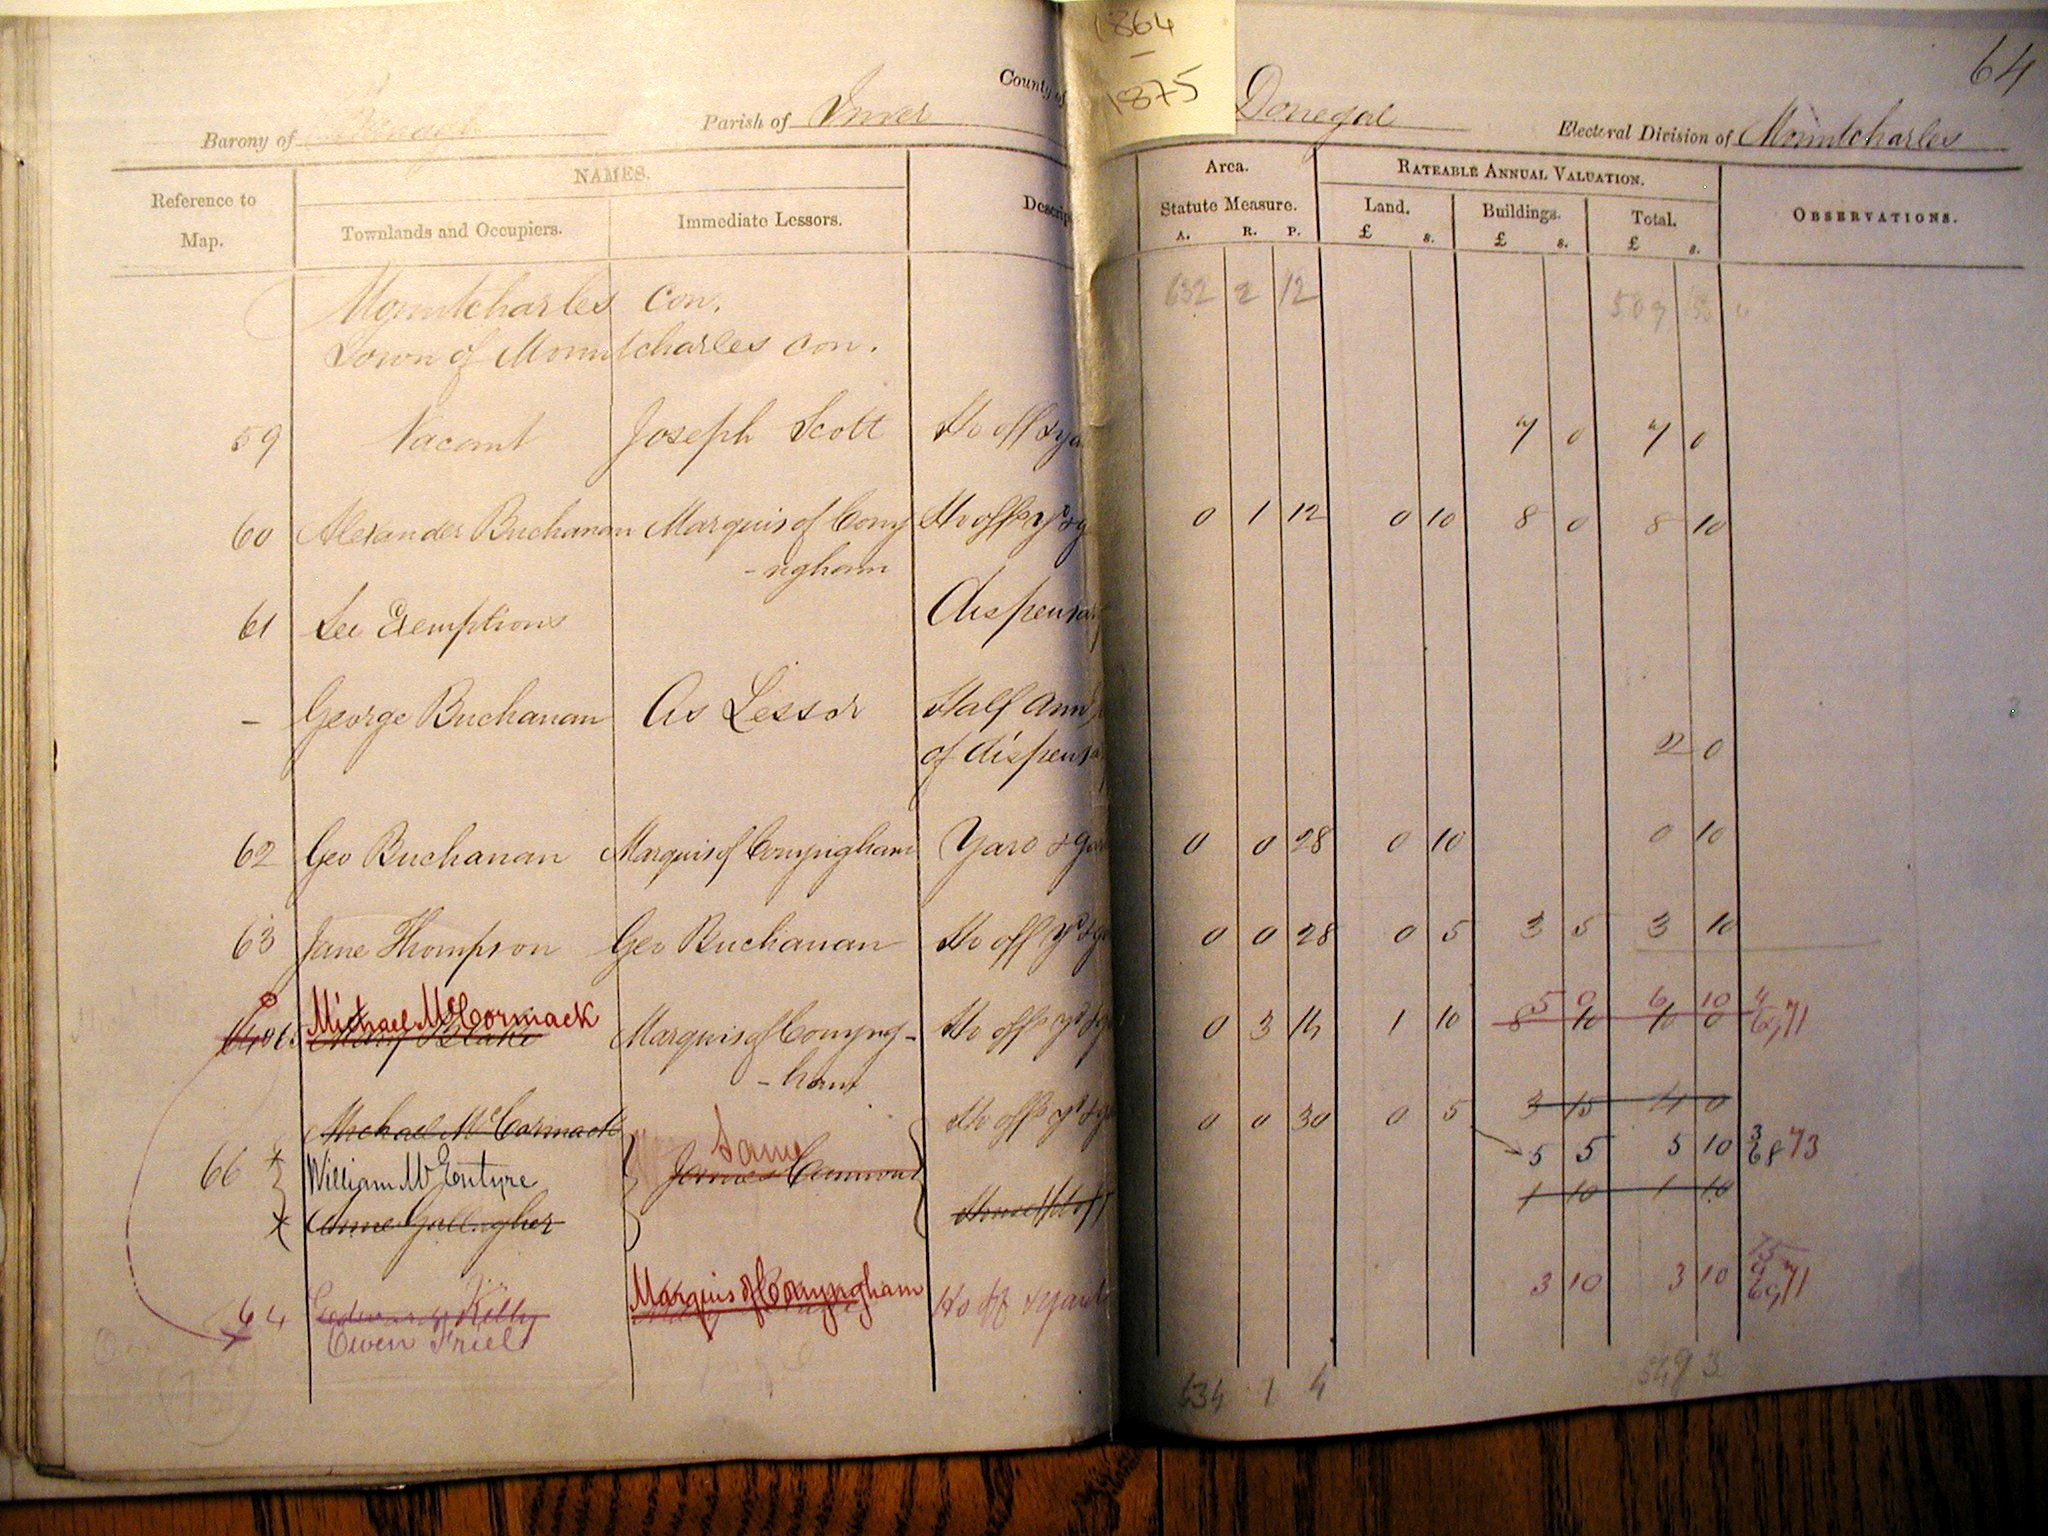 1864
—
1875
64
County of Donegal
Barony of
Parish of Inver
Electoral Division of Mountcharles
Reference to Map.
NAMES.
Townlands and Occupiers.
Immediate Lessors.
Descrip
Area.
Statute Measure.
A. R. P.
RATEABLE ANNUAL VALUATION.
Land. Buildings. Total.
£ s. £ s. £ s.
OBSERVATIONS.
Mountcharles Con. 632 2 12 509
Town of Mountcharles con.
59 Vacant Joseph Scott Ho off & ya 7 0 7 0
60 Alexander Buchanan Marquis of Conyngham Ho offs yd & g 0 1 12 0 10 8 0 8 10
61 See Exemptions dispensary
– George Buchanan As Lessor Half Annl
of dispensa 2 0
62 Geo Buchanan Marquis of Conyngham Yard & gar 0 0 28 0 10 0 10
63 Jane Thompson Geo Buchanan Ho off yd & ga 0 0 28 0 5 3 5 3 10
Michael McCormack 5 0 6 10 4
65 Mary Blake Marquis of Conyng-
-ham Ho offs yd & ga 0 3 14 1 10 8 10 10 0 69 71
Michael McCormack Same Ho offs yd & ga 0 0 30 0 5 3 15 4 0
66 William McEntyre James Cammont 5 5 5 10 3 68 73
Anne Gallagher House 1 10 1 10
Marquis of Conyngham
64 Edward Kelly Ho off & yard 3 10 3 10 69 71
Owen Friel
634 1 4 549 3